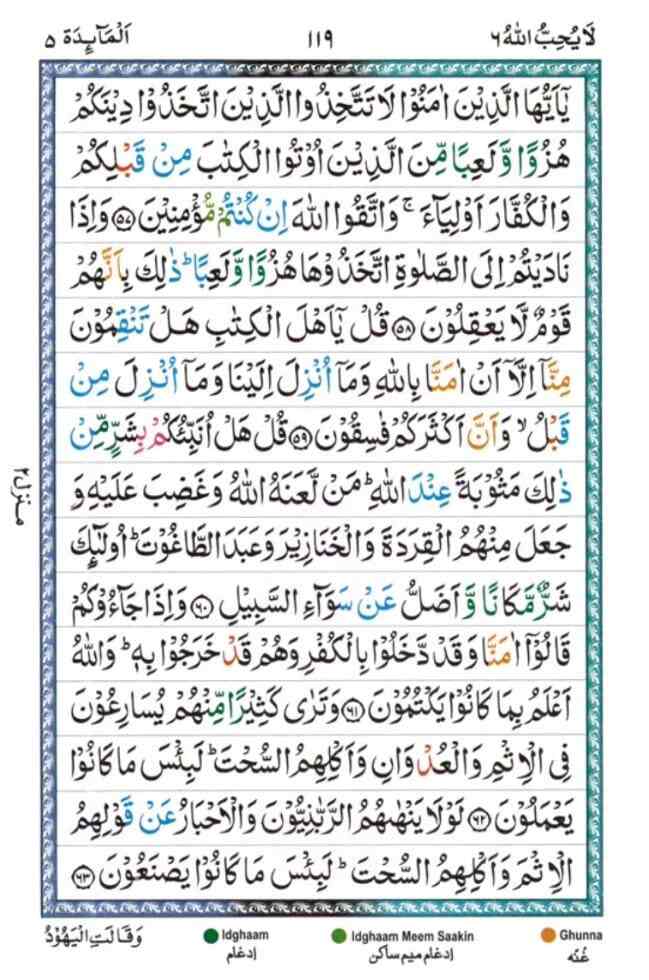 لَا يُحِبُّ اللّٰهُ ٦
١١٩
اَلْمَآئِدَة ٥
يٰٓاَيُّهَا الَّذِيْنَ اٰمَنُوْا لَا تَتَّخِذُوا الَّذِيْنَ اتَّخَذُوْا دِيْنَكُمْ
هُزُوًا وَّلَعِبًا مِّنَ الَّذِيْنَ اُوْتُوا الْكِتٰبَ مِنْ قَبْلِكُمْ
وَالْكُفَّارَ اَوْلِيَآءَ ۚ وَاتَّقُوا اللّٰهَ اِنْ كُنْتُمْ مُّؤْمِنِيْنَ ﴿٥٧﴾ وَاِذَا
نَادَيْتُمْ اِلَى الصَّلٰوةِ اتَّخَذُوْهَا هُزُوًا وَّلَعِبًا ؕ ذٰلِكَ بِاَنَّهُمْ
قَوْمٌ لَّا يَعْقِلُوْنَ ﴿٥٨﴾ قُلْ يٰٓاَهْلَ الْكِتٰبِ هَلْ تَنْقِمُوْنَ
مِنَّاۤ اِلَّاۤ اَنْ اٰمَنَّا بِاللّٰهِ وَمَاۤ اُنْزِلَ اِلَيْنَا وَمَاۤ اُنْزِلَ مِنْ
قَبْلُ ۙ وَاَنَّ اَكْثَرَكُمْ فٰسِقُوْنَ ﴿٥٩﴾ قُلْ هَلْ اُنَبِّئُكُمْ بِشَرٍّ مِّنْ
ذٰلِكَ مَثُوْبَةً عِنْدَ اللّٰهِ ؕ مَنْ لَّعَنَهُ اللّٰهُ وَغَضِبَ عَلَيْهِ وَ
جَعَلَ مِنْهُمُ الْقِرَدَةَ وَالْخَنَازِيْرَ وَعَبَدَ الطَّاغُوْتَ ؕ اُولٰٓئِكَ
شَرٌّ مَّكَانًا وَّاَضَلُّ عَنْ سَوَآءِ السَّبِيْلِ ﴿٦٠﴾ وَاِذَا جَآءُوْكُمْ
قَالُوْۤا اٰمَنَّا وَقَدْ دَّخَلُوْا بِالْكُفْرِ وَهُمْ قَدْ خَرَجُوْا بِهٖ ؕ وَاللّٰهُ
اَعْلَمُ بِمَا كَانُوْا يَكْتُمُوْنَ ﴿٦١﴾ وَتَرٰى كَثِيْرًا مِّنْهُمْ يُسَارِعُوْنَ
فِى الْاِثْمِ وَالْعُدْوَانِ وَاَكْلِهِمُ السُّحْتَ ؕ لَبِئْسَ مَا كَانُوْا
يَعْمَلُوْنَ ﴿٦٢﴾ لَوْلَا يَنْهٰىهُمُ الرَّبّٰنِيُّوْنَ وَالْاَحْبَارُ عَنْ قَوْلِهِمُ
الْاِثْمَ وَاَكْلِهِمُ السُّحْتَ ؕ لَبِئْسَ مَا كَانُوْا يَصْنَعُوْنَ ﴿٦٣﴾
منزل ٢
Idghaam
ادغام
Idghaam Meem Saakin
ادغام میم ساکن
Ghunna
غُنّه
وَقَالَتِ الْيَهُوْدُ